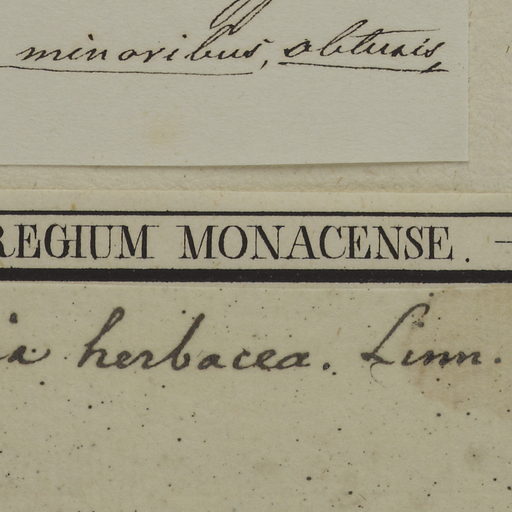 minoribus, obtusis,
REGIUM MONACENSE. —
ia herbacea. Linn.